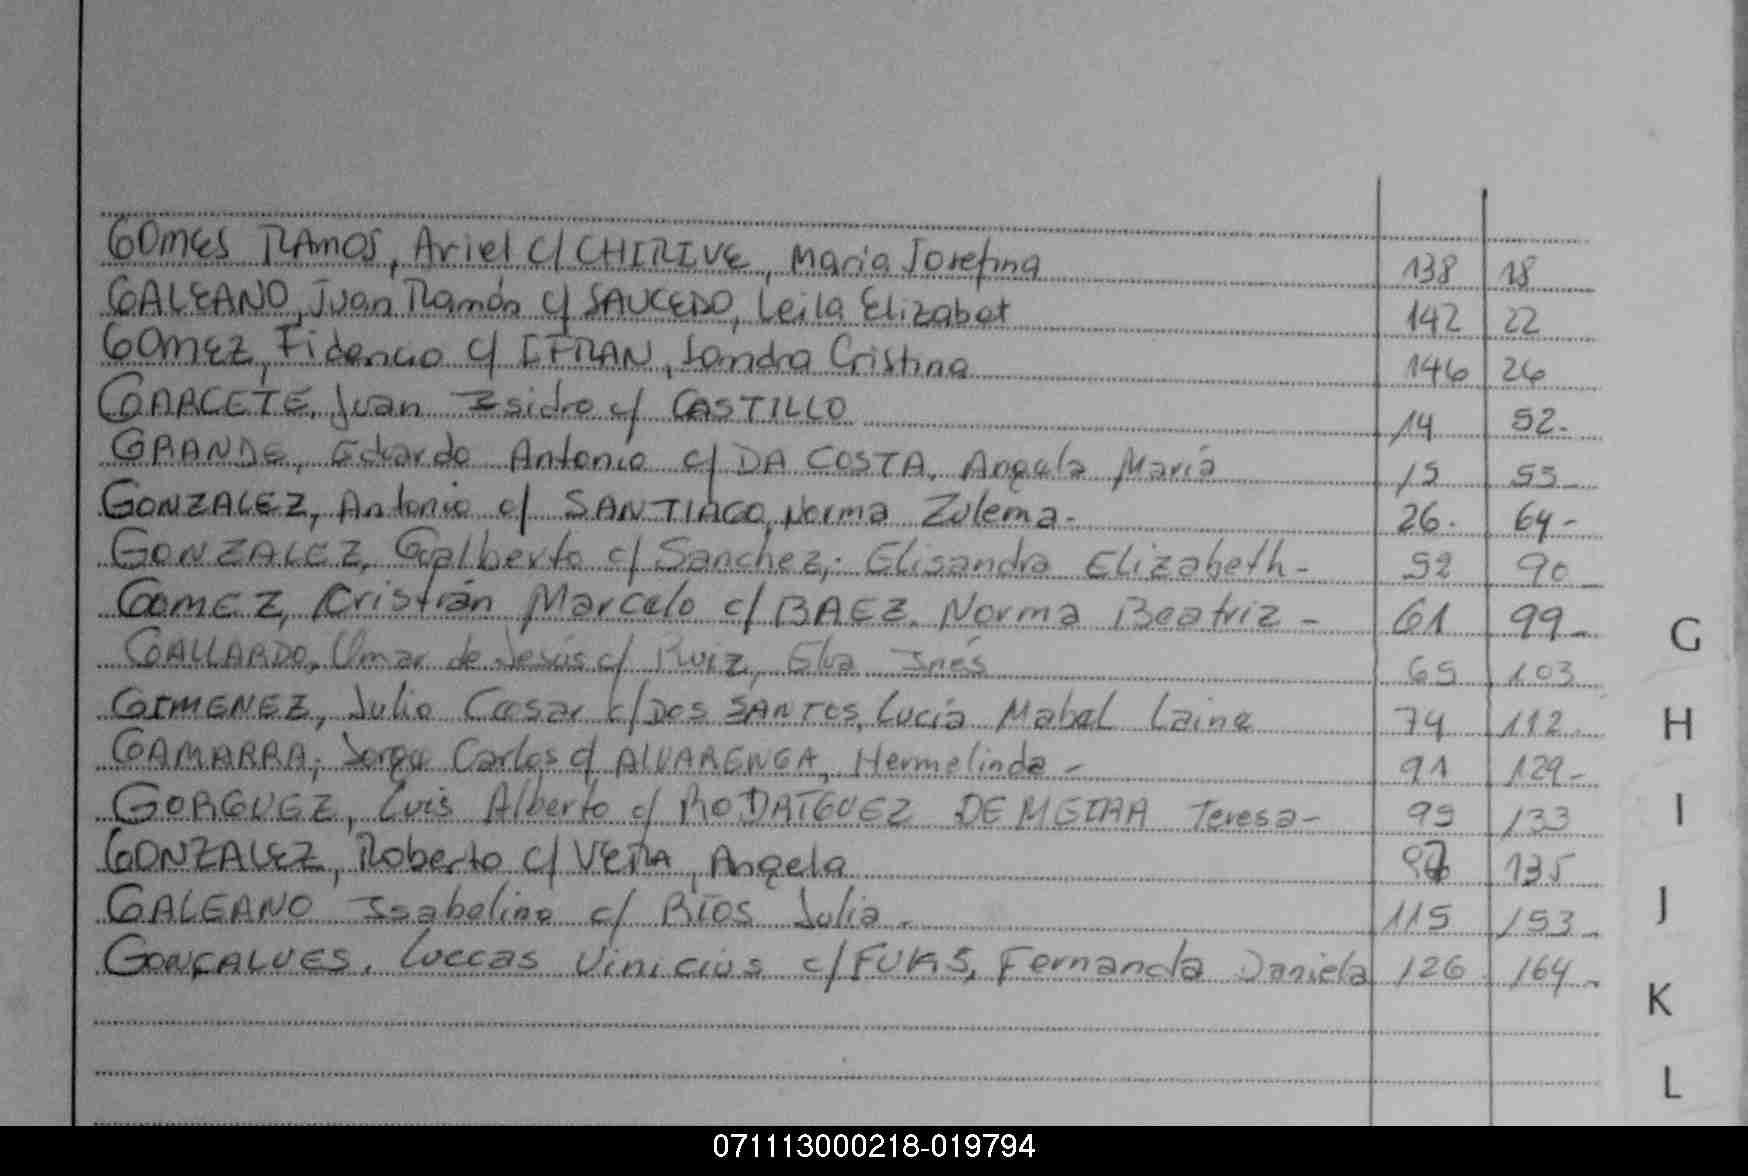 GOMES RAMOS, Ariel c/ CHIRIVE, Maria Josefina 138 18
GALEANO, Juan Ramón c/ SAUCEDO, Leila Elizabet 142 22
GOMEZ, Fidencio c/ IFRAN, Sandra Cristina 146 26
GARACETE, Juan Isidro c/ CASTILLO 14 52.
GRANDE, Eduardo Antonio c/ DA COSTA, Angela Maria 15 53-
GONZALEZ, Antonio c/ SANTIAGO, Norma Zulema- 26. 64-
GONZALEZ, Galberto c/ Sanchez, Elisandra Elizabeth- 52 90-
GOMEZ, Cristián Marcelo c/ BAEZ, Norma Beatriz - 61 99-
GALLARDO, Omar de Jesús c/ Ruiz, Elva Inés 65 103
GIMENEZ, Julio Cesar c/ DOS SANTOS, Lucia Mabel Laine 74 112-
GAMARRA, Jorge Carlos c/ ALVARENGA, Hermelinda- 91 129-
GORGUEZ, Luis Alberto c/ RODRIGUEZ DE MEIRA Teresa- 95 133
GONZALEZ, Roberto c/ VERA, Angela 97 135
GALEANO Isabelino c/ RIOS Julia. 115 153-
GONÇALVES, Luccas Vinicius c/ FUKS, Fernanda Daniela 126 164-
G
H
I
J
K
L
071113000218-019794